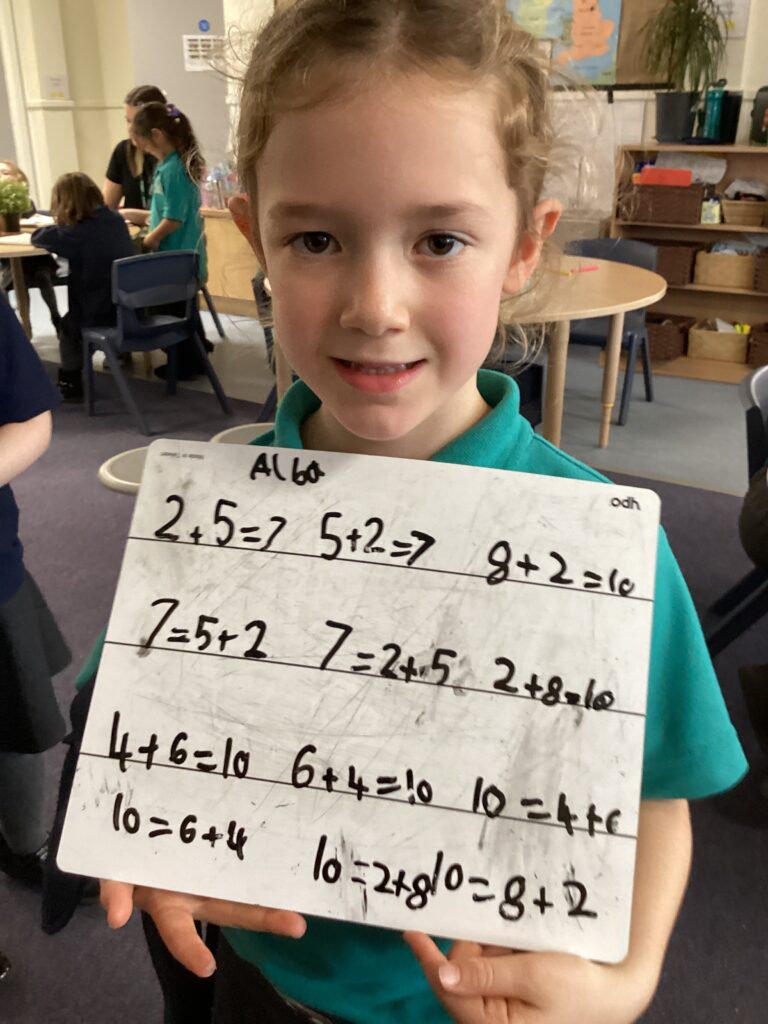 Alba
2+5=7 5+2=7 8+2=10
7=5+2 7=2+5 2+8=10
4+6=10 6+4=10 10=4+6
10=6+4 10=2+8 10=8+2